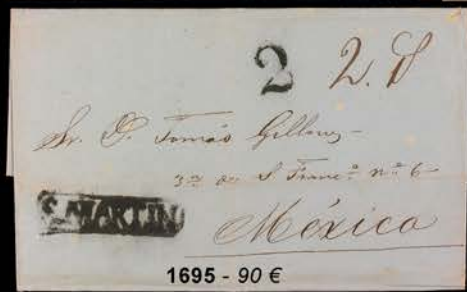 2 2. R
Sr. D. Tomás Gillow
3ª de S Franco nº 6
S. MARTIN
México
1695 - 90 €